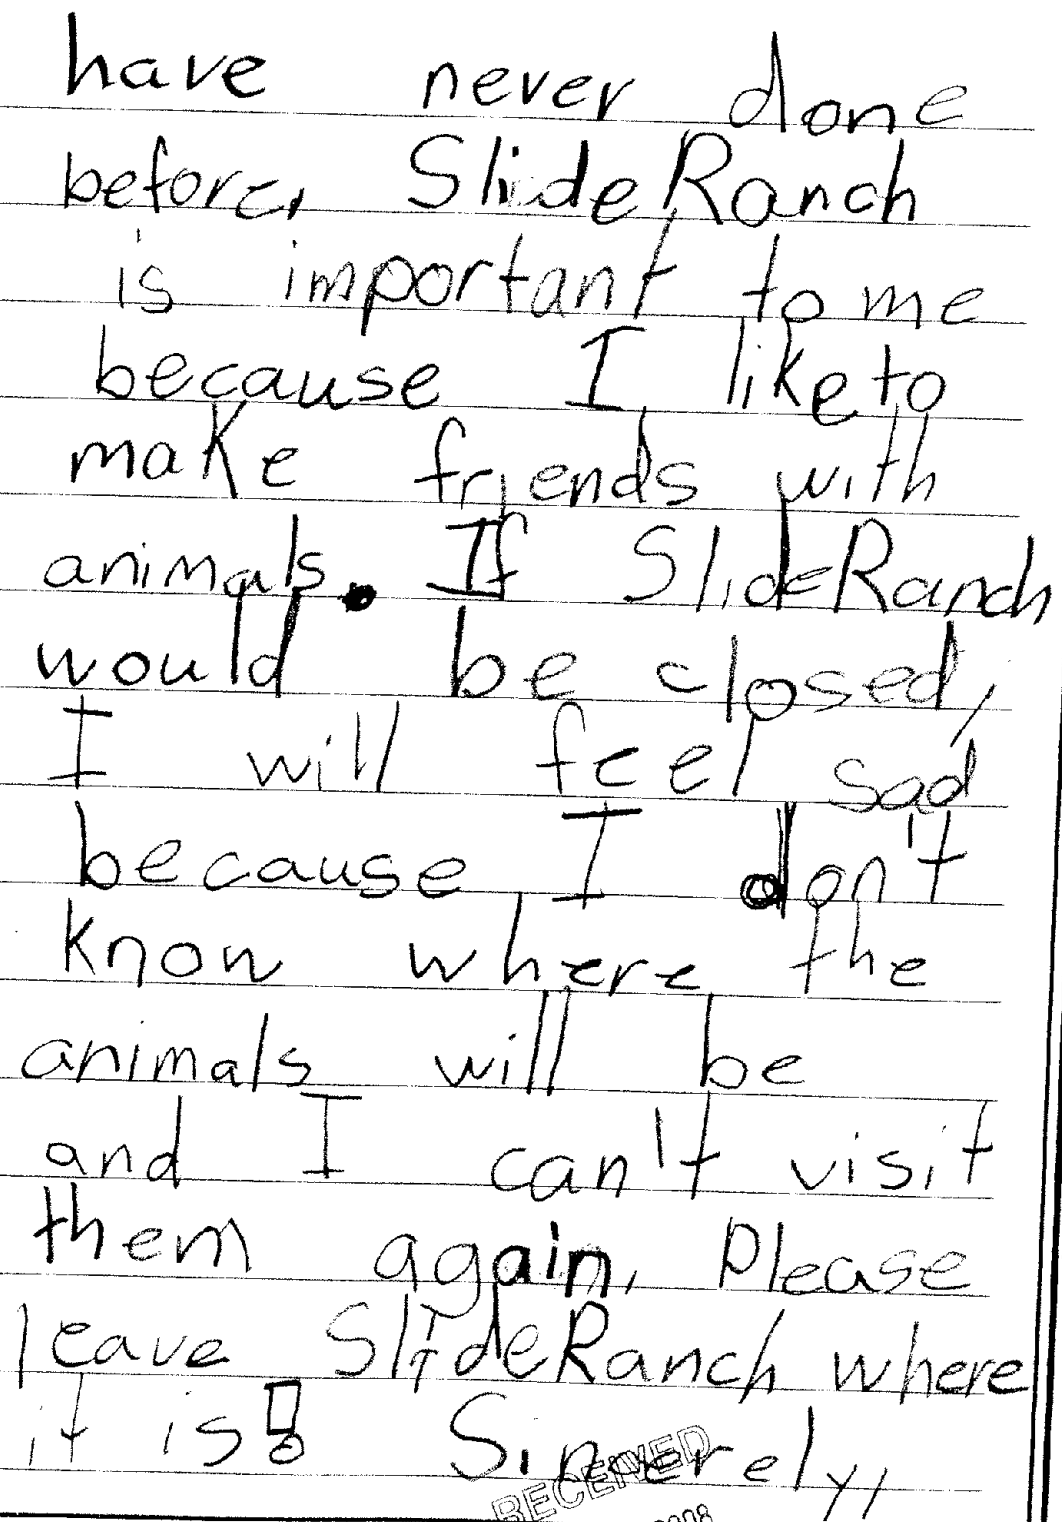 have never done
before, Slide Ranch
is important to me
because I like to
make friends with
animals. If Slide Ranch
would be closed,
I will feel sad
because I don't
know where the
animals will be
and I can't visit
them again, Please
leave Slide Ranch where
it is! Sincerely,
RECEIVED